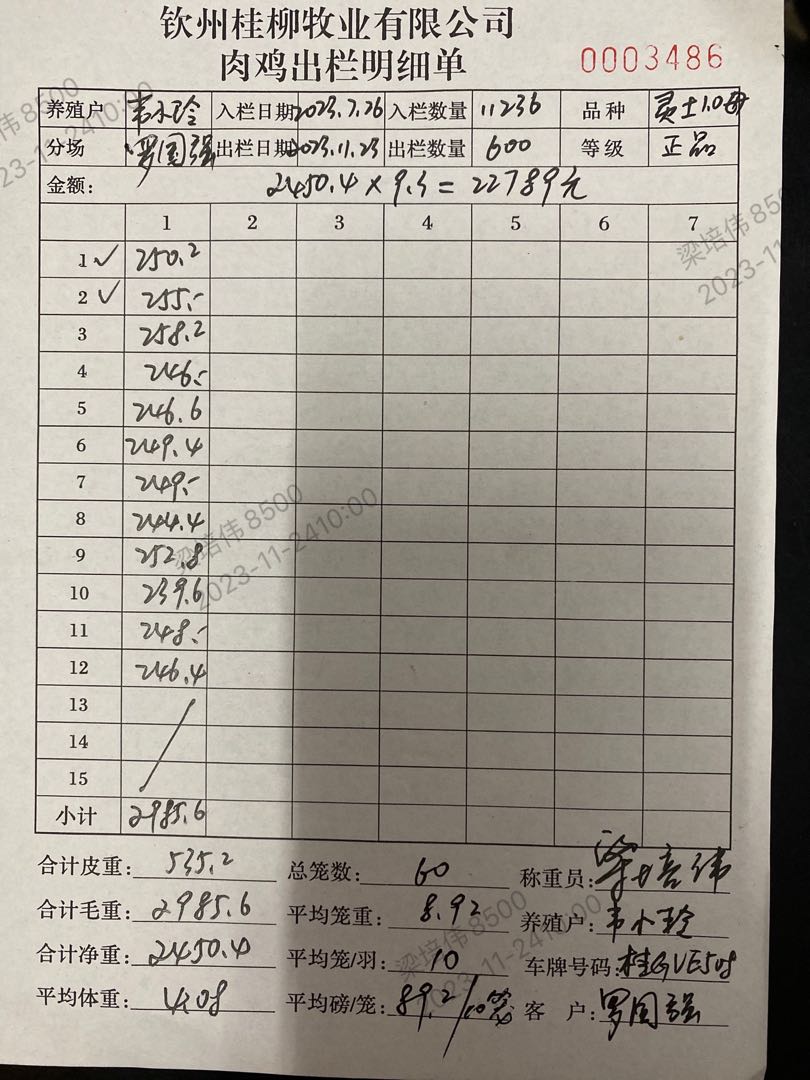 钦州桂柳牧业有限公司
肉鸡出栏明细单 0003486
养殖户 韦小玲 入栏日期 2023.7.26 入栏数量 11236 品种
分场 罗国强 出栏日期 2023.11.23 出栏数量 600 等级 正品
金额: 2450.4 × 9.3 = 22789元
1 2 3 4 5 6 7
1 ✓ 250.2
2 ✓ 255.-
3 258.2
4 246.-
5 246.6
6 249.4
7 249.-
8 244.4
9 252.8
10 239.6
11 248.-
12 246.4
13
14
15
小计 2985.6
合计皮重: 535.2 总笼数: 60 称重员: 梁培伟
合计毛重: 2985.6 平均笼重: 8.92 养殖户: 韦小玲
合计净重: 2450.4 平均笼/羽: 10 车牌号码:
平均体重: 4.08 平均磅/笼: 89.2/10笼 客户: 罗国强
梁培伟 8500
2023-11-24 10:00